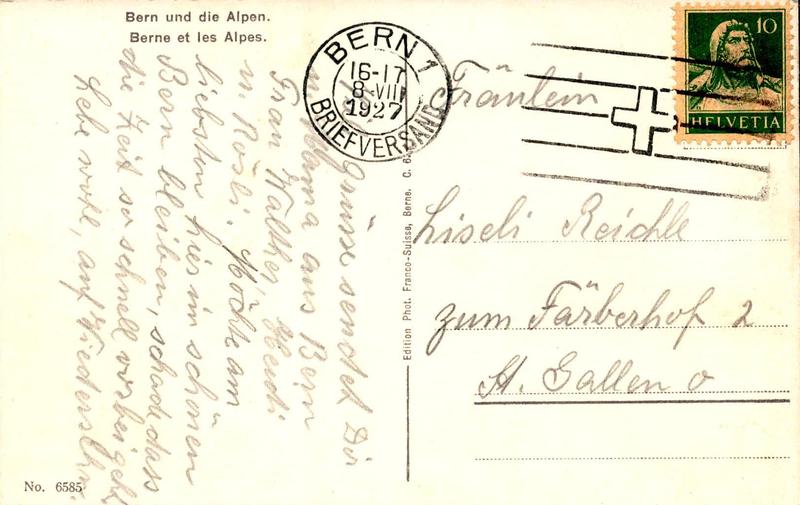 Bern und die Alpen.
Berne et les Alpes.
BERN 1
16-17
8.VIII
1927
BRIEFVERSAND
10
HELVETIA
Grüsse sendet Dir
Mama aus Bern
Frau Walther, Heidi
u. Rösli. Möchte am
liebsten hier im schönen
Bern bleiben, schade dass
die Zeit so schnell vorbei geht
Lebe wohl, auf Wiedersehn.
Fräulein
Liseli Reichle
zum Färberhof 2
St. Gallen O
Edition Phot. Franco-Suisse, Berne.
No. 6585